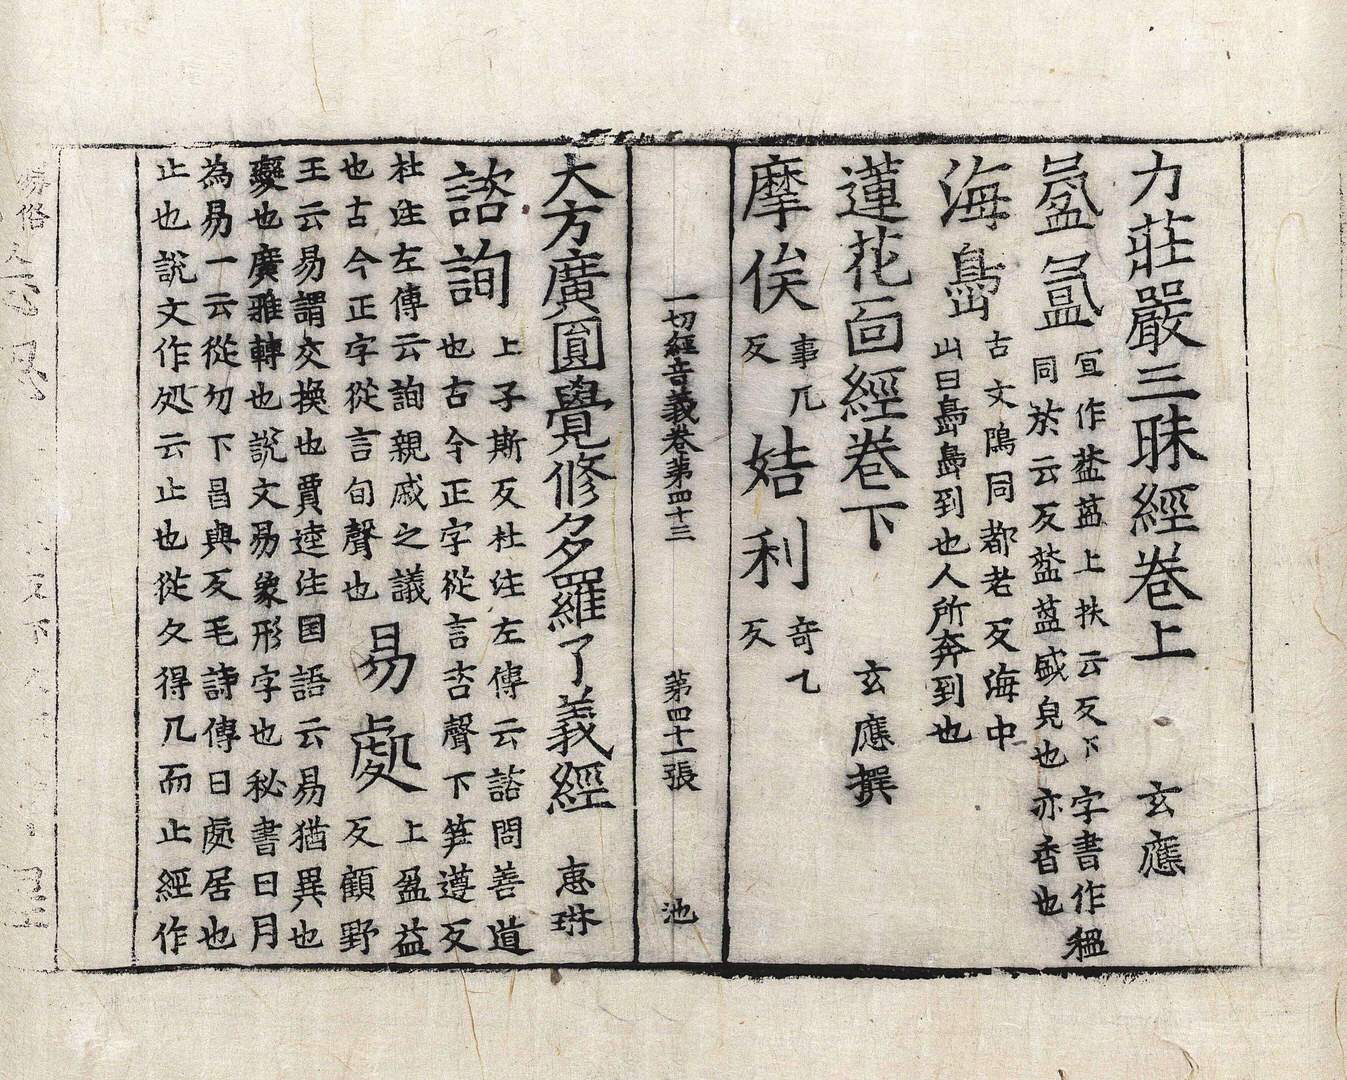 力莊嚴三昧經卷上 玄應
宜作葐蒀上扶云反下字書作䅼
同於云反葐蒀盛皃也亦香也
海㠀
古文隝同都老反海中
山曰㠀㠀到也人所奔到也
蓮花面經卷下 玄應撰
摩俟 事几反 姞利 竒乙反
一切經音義卷第四十三 第四十一張 池
大方廣圓覺修多羅了義經 惠琳
諮詢 上子斯反杜注左傳云諮問善道
也古今正字從言咨聲下笋遵反
杜注左傳云詢親戚之議
也古今正字從言旬聲也
易處 上盈益反顧野
王云易謂交換也賈逵注国語云易猶異也
變也廣雅轉也說文易象形字也秘書日月
為易一云從勿下昌與反毛詩傳曰處居也
止也說文作処云止也從夂得几而止經作